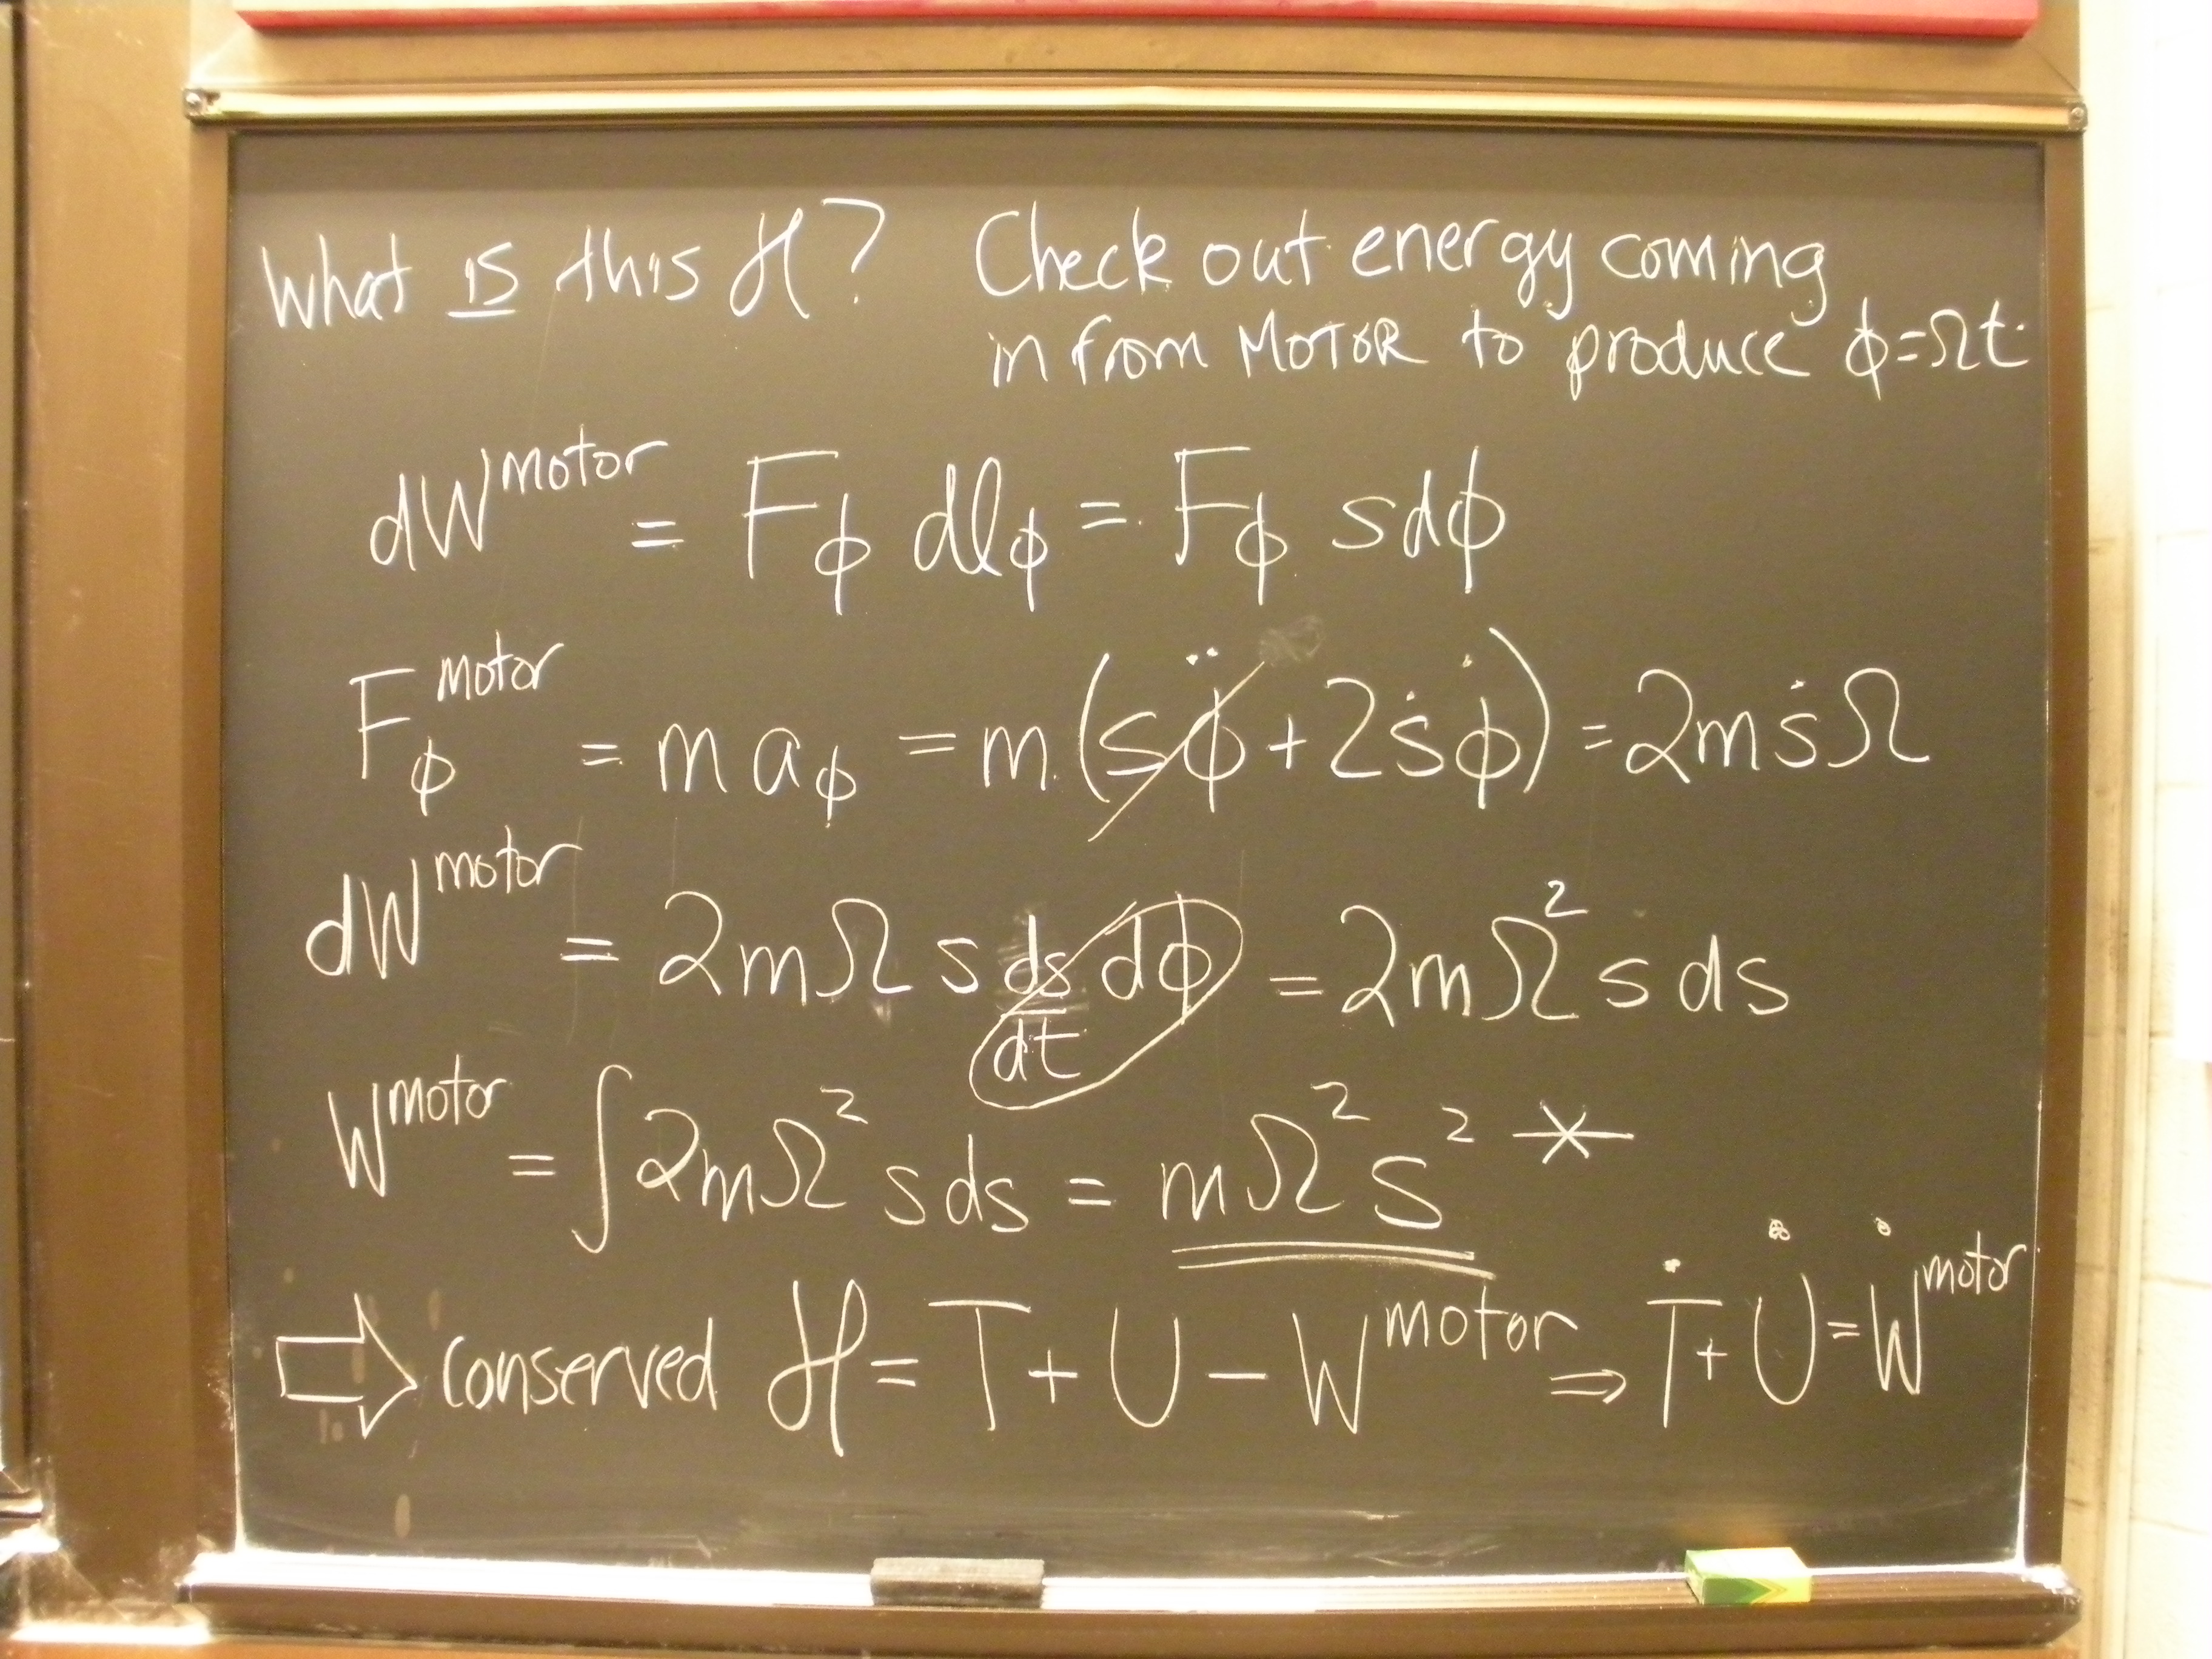 What is this H? Check out energy coming
in from MOTOR to produce ϕ=Ωt
dW^motor = F_ϕ dl_ϕ = F_ϕ s dϕ
F_ϕ^motor = m a_ϕ = m (s ϕ̈ + 2 ṡ ϕ̇) = 2 m ṡ Ω
dW^motor = 2mΩ s ds/dt dϕ = 2mΩ² s ds
W^motor = ∫ 2mΩ² s ds = mΩ² s² *
⇨ conserved H = T + U − W^motor ⇒ Ṫ + U̇ = Ẇ^motor